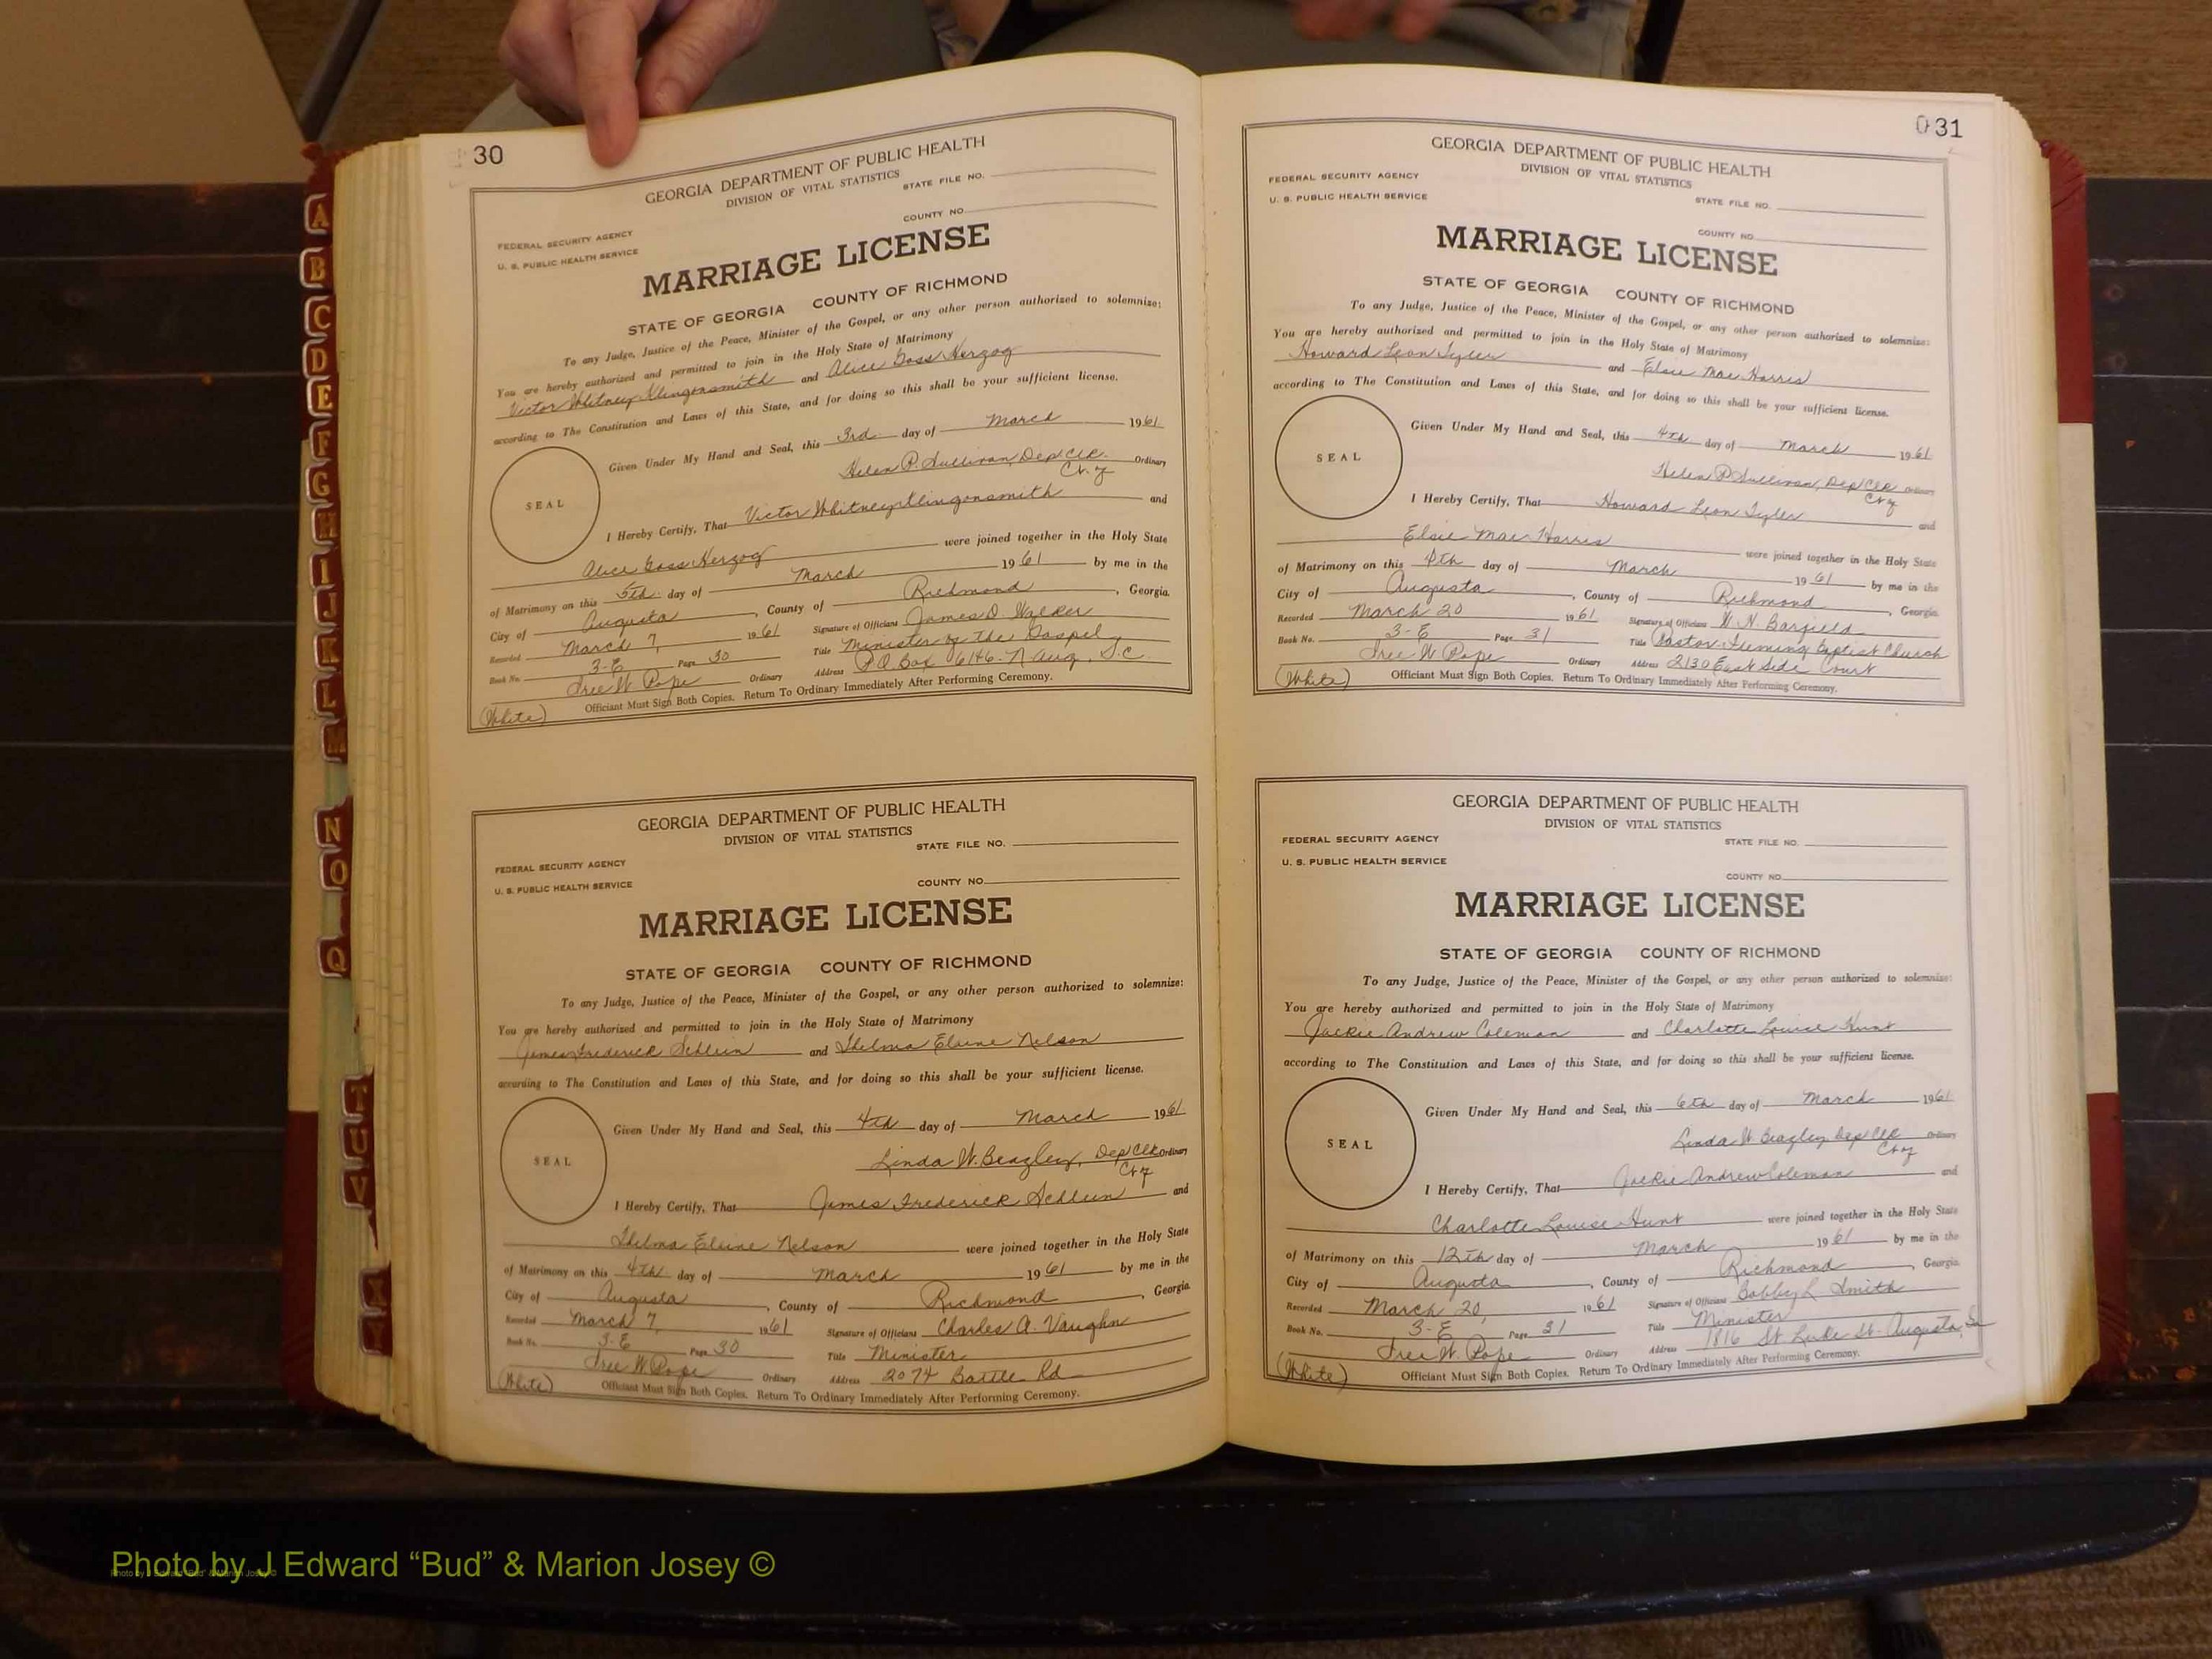 30
GEORGIA DEPARTMENT OF PUBLIC HEALTH
DIVISION OF VITAL STATISTICS
STATE FILE NO.
COUNTY NO.
FEDERAL SECURITY AGENCY
U. S. PUBLIC HEALTH SERVICE
MARRIAGE LICENSE
STATE OF GEORGIA COUNTY OF RICHMOND
To any Judge, Justice of the Peace, Minister of the Gospel, or any other person authorized to solemnize:
You are hereby authorized and permitted to join in the Holy State of Matrimony
Victor Whitney Klingonsmith and Alice Goss Herzog
according to The Constitution and Laws of this State, and for doing so this shall be your sufficient license.
Given Under My Hand and Seal, this 3rd day of March 1961
Helen P. Sullivan, Dep Clk. Ordinary
SEAL
I Hereby Certify, That Victor Whitney Klingonsmith and
Alice Goss Herzog were joined together in the Holy State
of Matrimony on this 5th day of March 1961 by me in the
City of Augusta, County of Richmond, Georgia.
Recorded March 7, 1961 Signature of Officiant James D. Walker
Book No. 3-E Page 30 Title Minister of the Gospel
Ordinary Address P.O. Box 6146. N. Aug, S.C.
(White) Officiant Must Sign Both Copies. Return To Ordinary Immediately After Performing Ceremony.
GEORGIA DEPARTMENT OF PUBLIC HEALTH
DIVISION OF VITAL STATISTICS
STATE FILE NO.
FEDERAL SECURITY AGENCY
U. S. PUBLIC HEALTH SERVICE
COUNTY NO.
MARRIAGE LICENSE
STATE OF GEORGIA COUNTY OF RICHMOND
To any Judge, Justice of the Peace, Minister of the Gospel, or any other person authorized to solemnize:
You are hereby authorized and permitted to join in the Holy State of Matrimony
James Frederick Schlein and Thelma Elaine Nelson
according to The Constitution and Laws of this State, and for doing so this shall be your sufficient license.
Given Under My Hand and Seal, this 4th day of March 1961
Linda W. Beazley, Dep Clk Ordinary
SEAL
I Hereby Certify, That James Frederick Schlein and
Thelma Elaine Nelson were joined together in the Holy State
of Matrimony on this 4th day of March 1961 by me in the
City of Augusta, County of Richmond, Georgia.
Recorded March 7, 1961 Signature of Officiant Charles A. Vaughn
Book No. 3-E Page 30 Title Minister
W. Pope Ordinary Address 2074 Battle Rd
(White) Officiant Must Sign Both Copies. Return To Ordinary Immediately After Performing Ceremony.
031
GEORGIA DEPARTMENT OF PUBLIC HEALTH
DIVISION OF VITAL STATISTICS
FEDERAL SECURITY AGENCY
U. S. PUBLIC HEALTH SERVICE
STATE FILE NO.
COUNTY NO.
MARRIAGE LICENSE
STATE OF GEORGIA COUNTY OF RICHMOND
To any Judge, Justice of the Peace, Minister of the Gospel, or any other person authorized to solemnize:
You are hereby authorized and permitted to join in the Holy State of Matrimony
Howard Leon Tyler and Elsie Mae Harris
according to The Constitution and Laws of this State, and for doing so this shall be your sufficient license.
Given Under My Hand and Seal, this 4th day of March 1961
Helen P Sullivan, Dep Clk Ordinary
SEAL
I Hereby Certify, That Howard Leon Tyler and
Elsie Mae Harris were joined together in the Holy State
of Matrimony on this 4th day of March 1961 by me in the
City of Augusta, County of Richmond, Georgia.
Recorded March 20 1961 Signature of Officiant W. N. Barfield
Book No. 3-E Page 31 Title Pastor-Fleming Baptist Church
W Pope Ordinary Address 2130 East Side Court
(White) Officiant Must Sign Both Copies. Return To Ordinary Immediately After Performing Ceremony.
GEORGIA DEPARTMENT OF PUBLIC HEALTH
DIVISION OF VITAL STATISTICS
FEDERAL SECURITY AGENCY
STATE FILE NO.
U. S. PUBLIC HEALTH SERVICE
COUNTY NO.
MARRIAGE LICENSE
STATE OF GEORGIA COUNTY OF RICHMOND
To any Judge, Justice of the Peace, Minister of the Gospel, or any other person authorized to solemnize:
You are hereby authorized and permitted to join in the Holy State of Matrimony
Jackie Andrew Coleman and Charlotte Louise Hunt
according to The Constitution and Laws of this State, and for doing so this shall be your sufficient license.
Given Under My Hand and Seal, this 6th day of March 1961
Linda W. Beazley Dep Clk Ordinary
SEAL
I Hereby Certify, That Jackie Andrew Coleman and
Charlotte Louise Hunt were joined together in the Holy State
of Matrimony on this 12th day of March 1961 by me in the
City of Augusta, County of Richmond, Georgia.
Recorded March 20, 1961 Signature of Officiant Bobby L Smith
Book No. 3-E Page 31 Title Minister
W. Pope Ordinary Address 1816 St Luke St- Augusta, Ga
(White) Officiant Must Sign Both Copies. Return To Ordinary Immediately After Performing Ceremony.
A
B
C
D
E
F
G
H
I
J
K
L
M
N
O
Q
T
U
V
X
Y
Photo by J Edward “Bud” & Marion Josey ©
Photo by J Edward “Bud” & Marion Josey ©